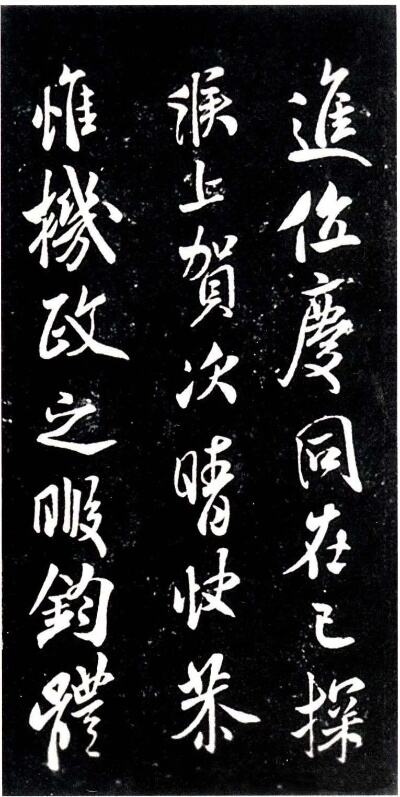 進位慶同在已探
候上賀次晴快恭
惟機政之暇鈞體